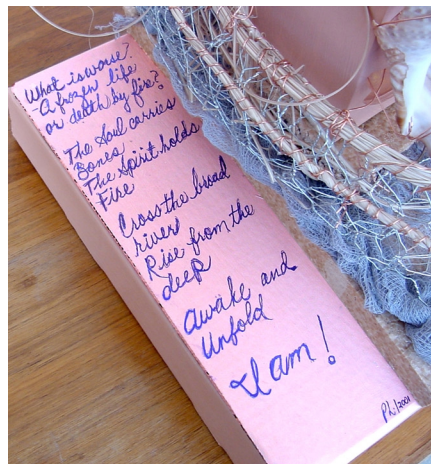 What is worse?
A frozen life
or death by fire?
The Soul carries
Bones
The Spirit holds
Fire
Cross the broad
river
Rise from the
deep
Awake and
Unfold
I am!